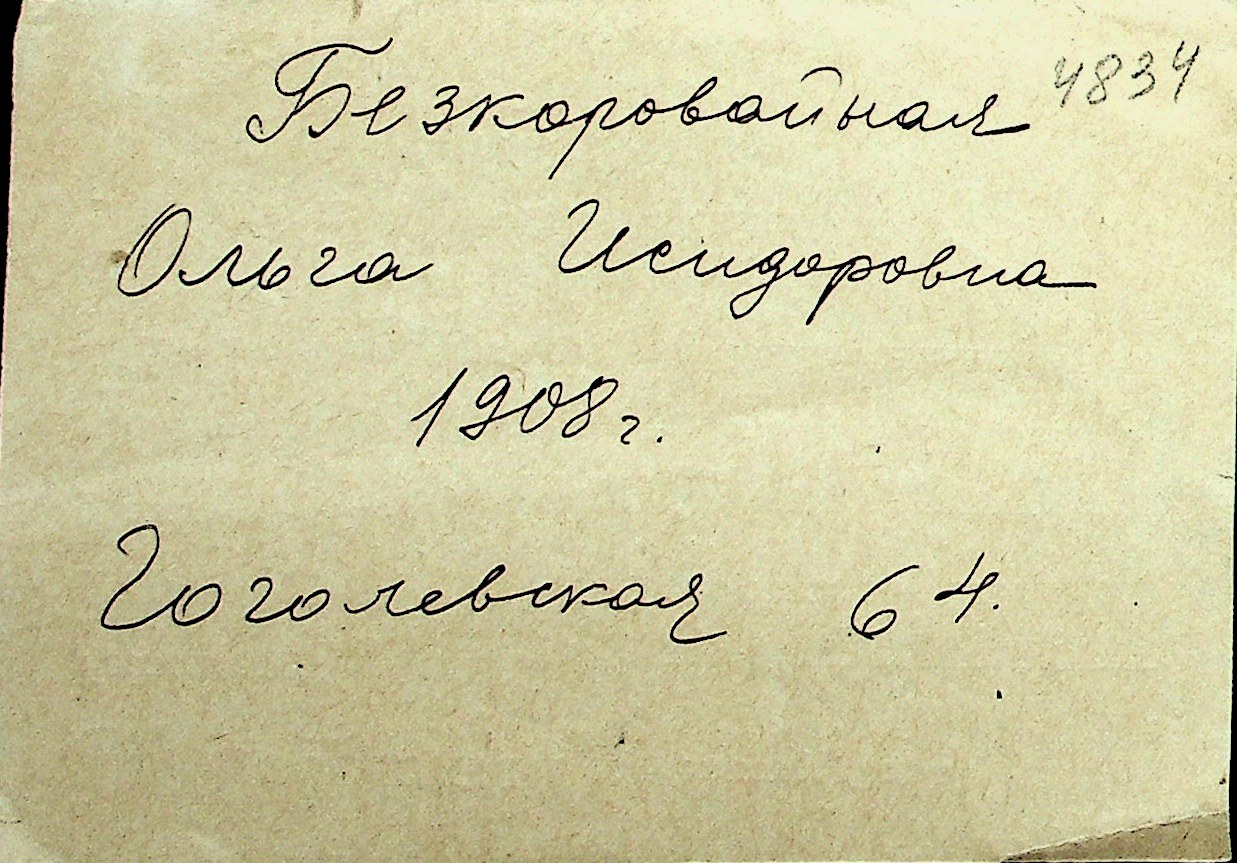 Безкоровайная 4834
Ольга Исидоровна
1908 г.
Гоголевская 64.